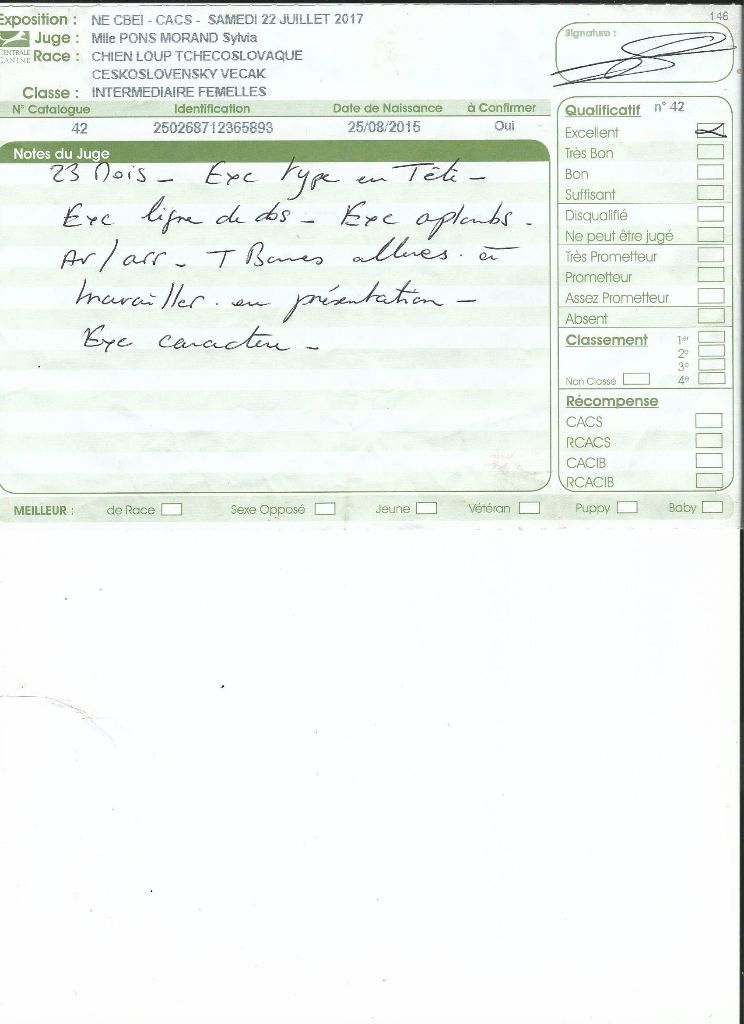 146
Exposition : NE CBEI - CACS - SAMEDI 22 JUILLET 2017
Juge : Mlle PONS MORAND Sylvia
CENTRALE CANINE
Race : CHIEN LOUP TCHECOSLOVAQUE
CESKOSLOVENSKY VECAK
Classe : INTERMEDIAIRE FEMELLES
N° Catalogue Identification Date de Naissance à Confirmer
42 250268712365893 25/08/2015 Oui
Notes du Juge
23 Mois - Exc type en Tête -
Exc ligne de dos - Exc aplombs -
Av/arr - T Bonnes allures à
travailler en présentation -
Exc caractère -
Signature :
Qualificatif n° 42
Excellent
Très Bon
Bon
Suffisant
Disqualifié
Ne peut être jugé
Très Prometteur
Prometteur
Assez Prometteur
Absent
Classement 1er
2e
3e
Non Classé 4e
Récompense
CACS
RCACS
CACIB
RCACIB
MEILLEUR : de Race Sexe Opposé Jeune Vétéran Puppy Baby